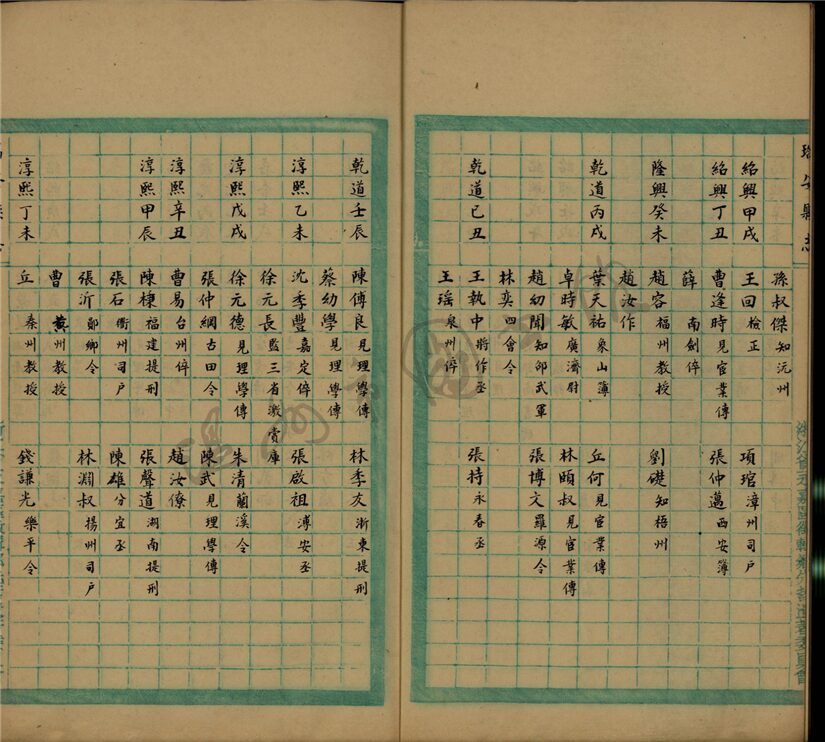 瑞安縣志
孫叔傑知沅州
紹興甲戌 王回檢正 項琯漳州司戶
紹興丁丑 曹逢時見宦業傳 張仲邁西安簿
薛 南劍倅
隆興癸未 趙容福州教授 劉礎知梧州
趙汝作
乾道丙戌 葉天祐象山簿 丘何見宦業傳
卓時敏廣濟尉 林頤叔見宦業傳
趙幼聞知邵武軍 張博文羅源令
林奕四會令
乾道己丑 王執中將作丞 張持永春丞
王瑤泉州倅
乾道壬辰 陳傅良見理學傳 林季友浙東提刑
蔡幼學見理學傳
淳熙乙未 沈季豐嘉定倅 張啟祖溥安丞
徐元長監三省激賞庫
淳熙戊戌 徐元德見理學傳 朱清蘭溪令
張仲網古田令 陳武見理學傳
淳熙辛丑 曹易台州倅 趙汝僚
淳熙甲辰 陳棲福建提刑 張聲道湖南提刑
張石衢州司戶 陳雄分宜丞
張沂鄖鄉令 林淵叔揚州司戶
曹 黃州教授
淳熙丁未 丘 秦州教授 錢謙光樂平令